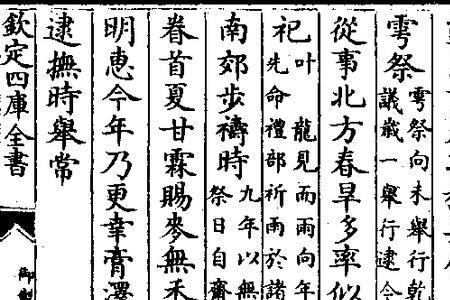 雩祭雩祭向未舉行乾
議嵗一舉行逮今
從事北方春旱多率似
祀叶龍見而雨向年
先命禮部祈雨於諸
南郊步禱時九年以無
祭日自齋
眷首夏甘霖賜麥無禾
明惠今年乃更幸膏澤
逮撫時舉常
欽定四庫全書
御製